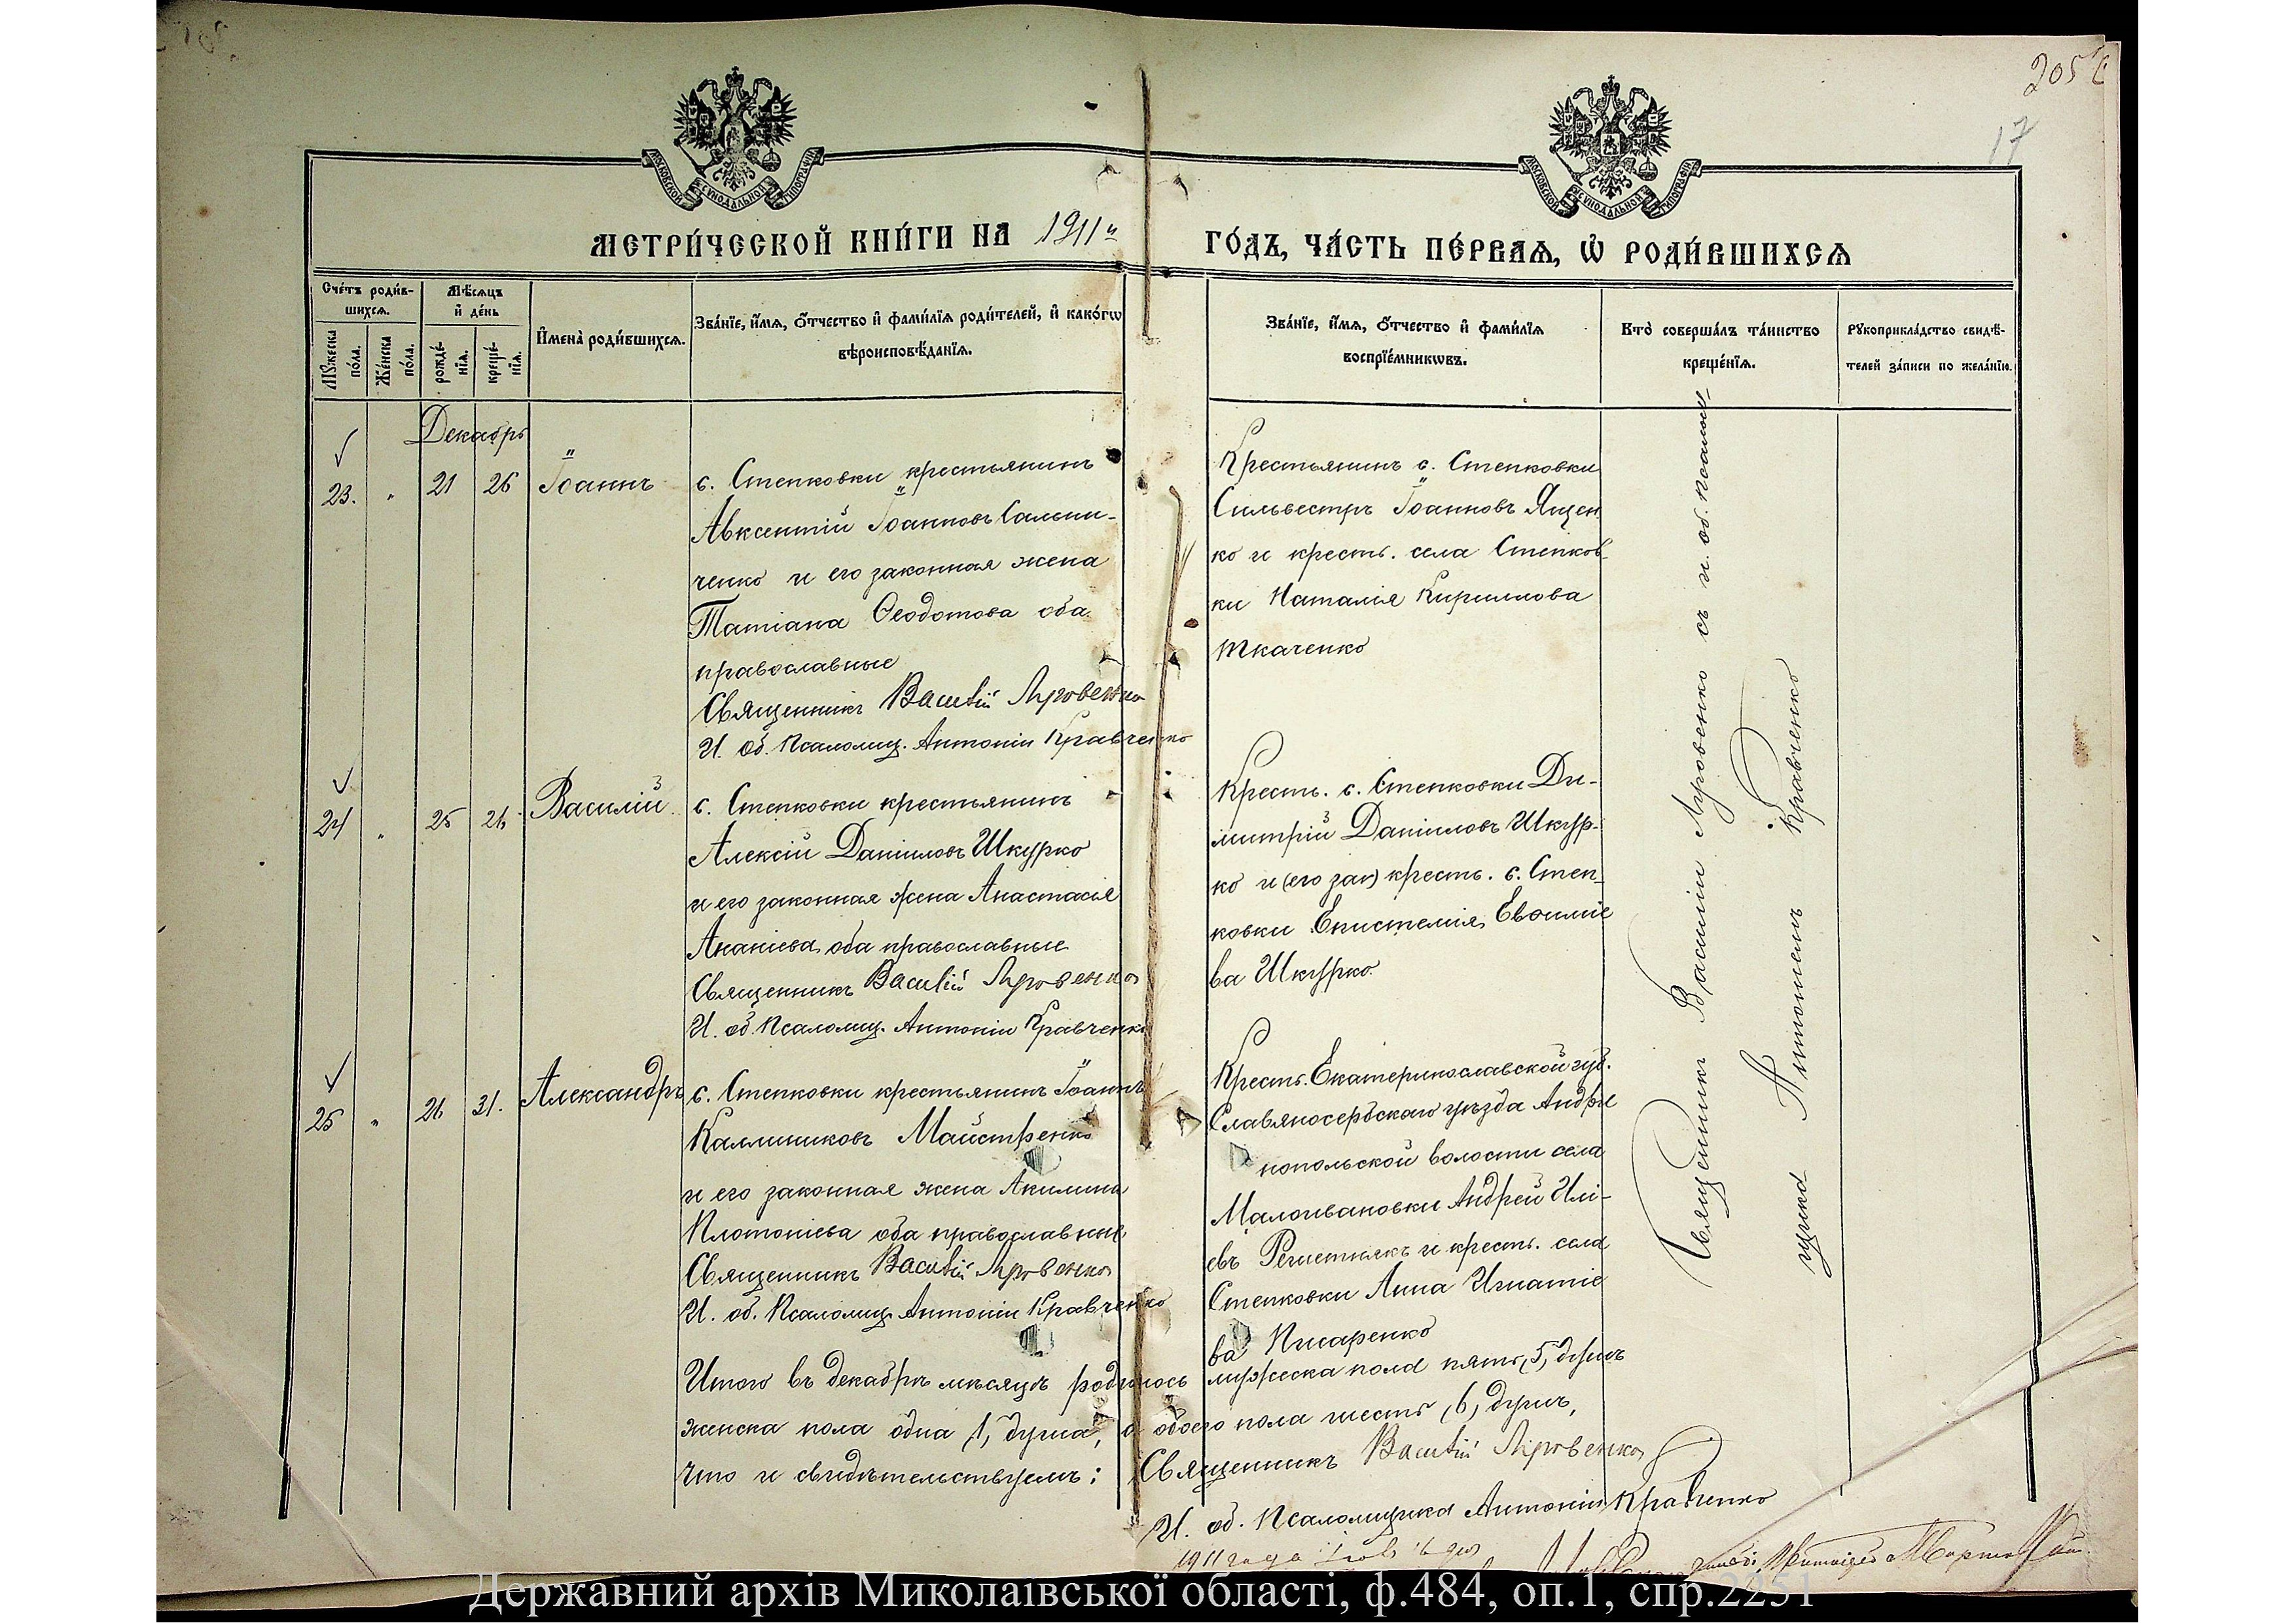 205
17
МОСКОВСКОЙ СѴНОДАЛЬНОЙ ТИПОГРАФІИ
МОСКОВСКОЙ СѴНОДАЛЬНОЙ ТИПОГРАФІИ
МЕТРИ́ЧЕСКОЙ КНИ́ГИ НА 1911й ГО́ДЪ, ЧА́СТЬ ПЕ́РВАѦ, Ѡ҆ РОДИ́ВШИХСѦ
Сче́тъ роди́в-
шихсѧ.
Мꙋ́жеска
по́ла.
Же́нска
по́ла.
Мѣ́сѧцъ
и҆ де́нь
рожде́-
нїѧ.
креще́-
нїѧ.
И҆мена̀ роди́вшихсѧ.
Зва́нїе, и҆́мѧ, ѻ҆́тчество и҆ фами́лїѧ роди́телей, и҆ како́гѡ
вѣроисповѣ́данїѧ.
Зва́нїе, и҆́мѧ, ѻ҆́тчество и҆ фами́лїѧ
воспрїе́мникѡвъ.
Кто̀ соверша́лъ та́инство
креще́нїѧ.
Рꙋкоприкла́дство свидѣ́-
телей за́писи по жела́нїю.
Декабрь
23. " 21 26 Іоаннъ
с. Степковки крестьянинъ
Авксентій Іоанновъ Сальни-
ченко и его законная жена
Татіана Ѳеодотова оба
православные
Священникъ Василій Яровенко
И. об. Псаломщ. Антоній Кравченко
Крестьянинъ с. Степковки
Сильвестръ Іоанновъ Ящен
ко и кресть. села Степков-
ки Наталія Кириллова
Ткаченко
24 " 25 26 Василій
с. Степковки крестьянинъ
Алексій Даніиловъ Шкурко
и его законная жена Анастасія
Ананіева оба православные
Священникъ Василій Яровенко
И. об. Псаломщ. Антоній Кравченко
Кресть. с. Степковки Ди-
митрій Даніиловъ Шкур-
ко и (его зак) кресть. с. Степ-
ковки Епистемія Евѳиміе
ва Шкурко
25 " 26 31. Александръ
с. Степковки крестьянинъ Іоаннъ
Каллиниковъ Майстренко
и его законная жена Акилина
Платоніева оба православные
Священникъ Василій Яровенко
И. об. Псаломщ. Антоній Кравченко
Кресть. Екатеринославской губ.
Славяносербскаго уѣзда Андре
нопольской волости села
Малоивановки Андрей Илі-
евъ и кресть. села
Степковки Анна Игнатіе
ва Писаренко
Священникъ Василій Яровенко съ и. об. псалом-
щика Антоніемъ Кравченко
Итого въ декабрѣ мѣсяцѣ родилось мужеска пола пять, 5, душъ
женска пола одна, 1, душа, а обоего пола шесть, 6, душъ,
Что и свидѣтельствуемъ: Священникъ Василій Яровенко
И. об. Псаломщика Антоній Кравченко
1911 года
Державний архів Миколаївської області, ф.484, оп.1, спр.2251